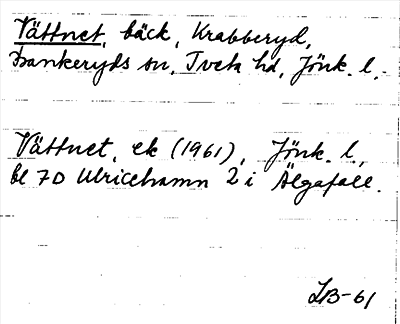 Vättnet, bäck, Krabberyd,
Bankeryds sn, Tveta hd, Jönk. l.
Vättnet, ek (1961), Jönk. l.,
bl 7D Ulricehamn 2 i Älgafall.
LB-61